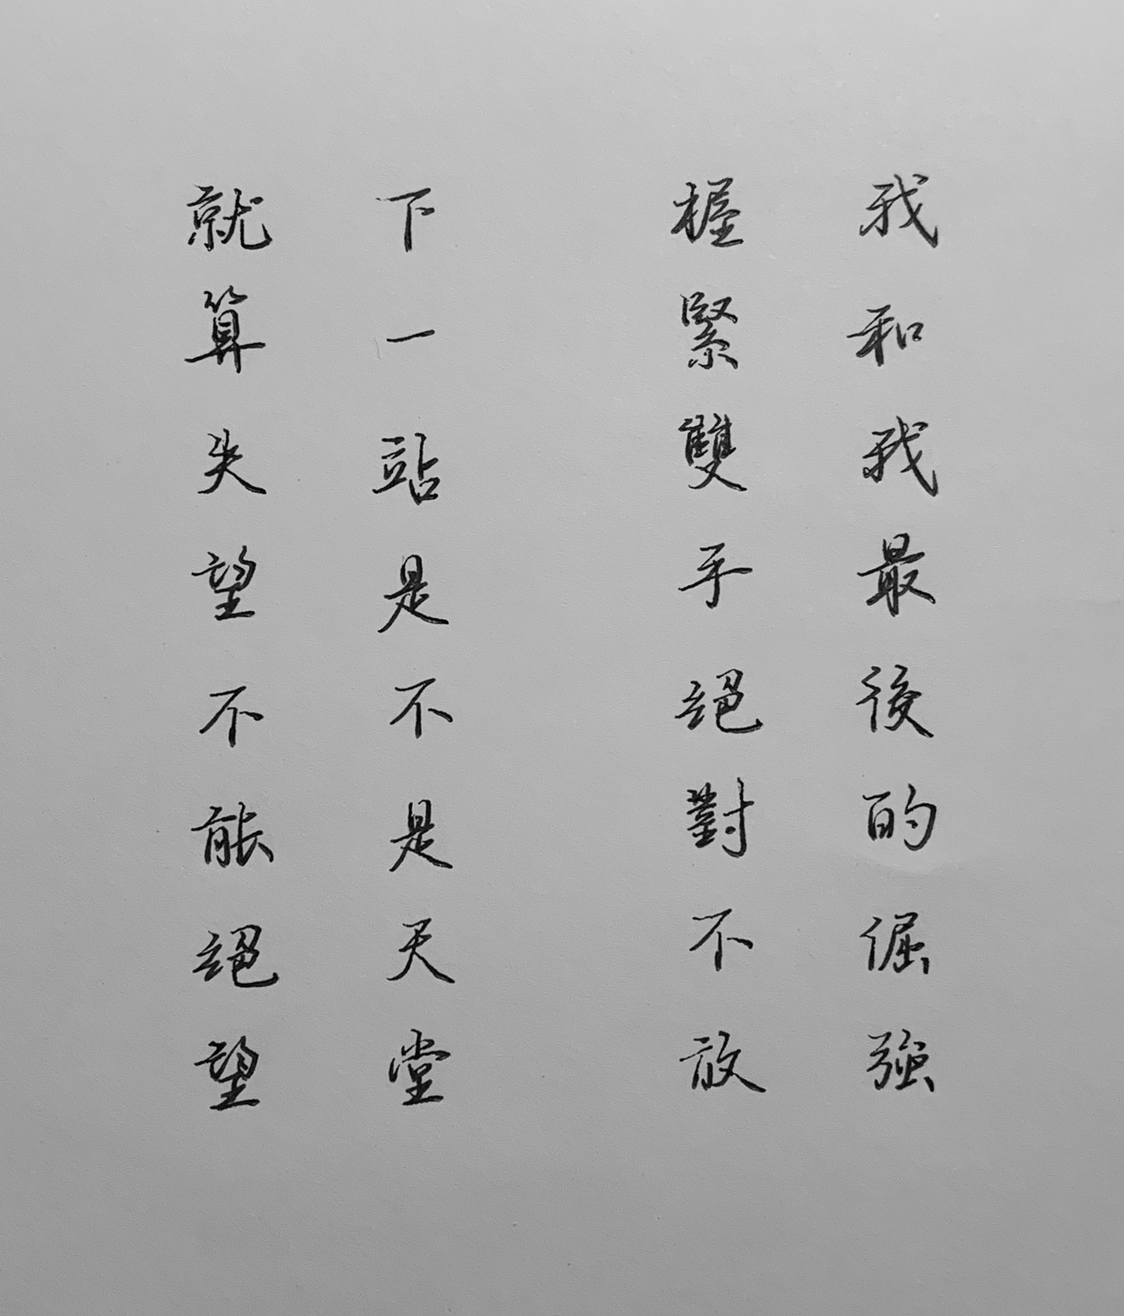 我和我最後的倔強
握緊雙手絕對不放
下一站是不是天堂
就算失望不能絕望